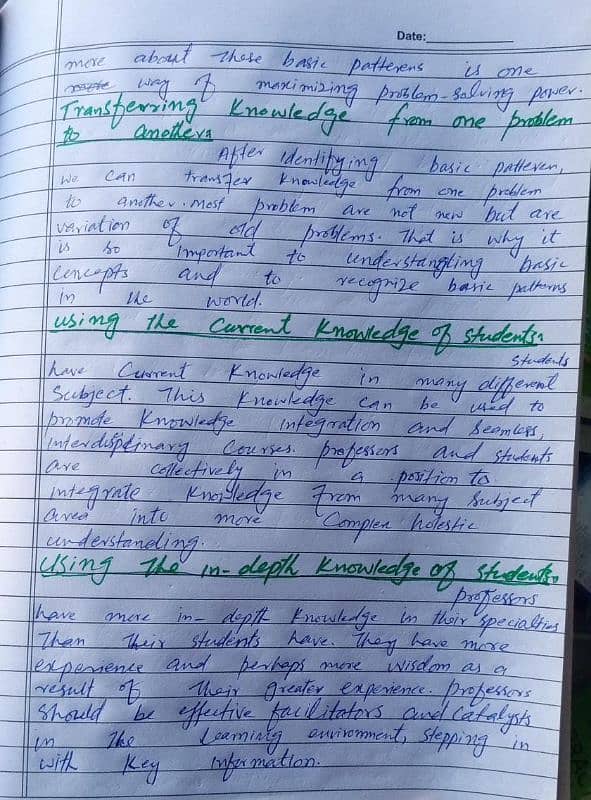 Date:
more about these basic patterens is one
way of maximizing problem-solving power.
Transferring Knowledge from one problem
to anothers
After identifying basic patteren,
we can transfer knowledge from one problem
to another. Most problem are not new but are
variation of old problems. That is why it
is so important to understangling basic
concepts and to recognize basic patterns
in the world.
Using the Current Knowledge of students.
Students
have Current Knowledge in many different
Subject. This Knowledge can be used to
promote Knowledge integration and Seamless,
interdisplinary Courses. professors and students
are collectively in a position to
integrate Knowledge From many Subject
area into more Complex holestic
understanding.
Using The in-depth Knowledge of Students.
professors
have more in-depth Knowledge in their specialties
Than Their students have. They have more
experience and perhaps more wisdom as a
result of Their Greater experience. professors
Should be effective facilitators and Catalysts
in The Learning environment, stepping in
with Key information.